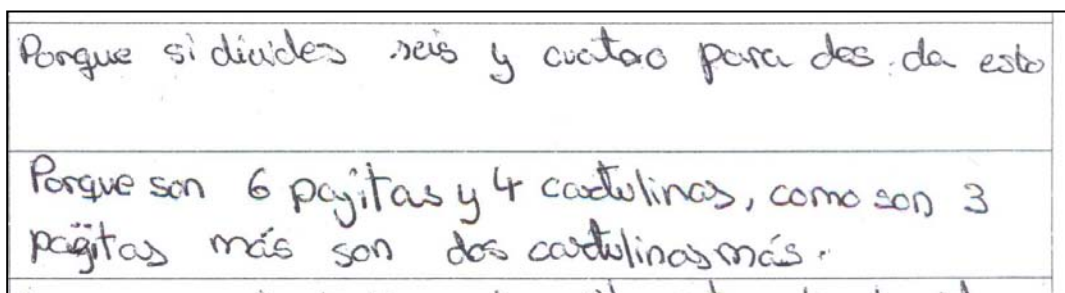 Porque si divides seis y cuatro para dos da esto
Porque son 6 pajitas y 4 cartulinas, como son 3
pagitas más son dos cartulinas más.